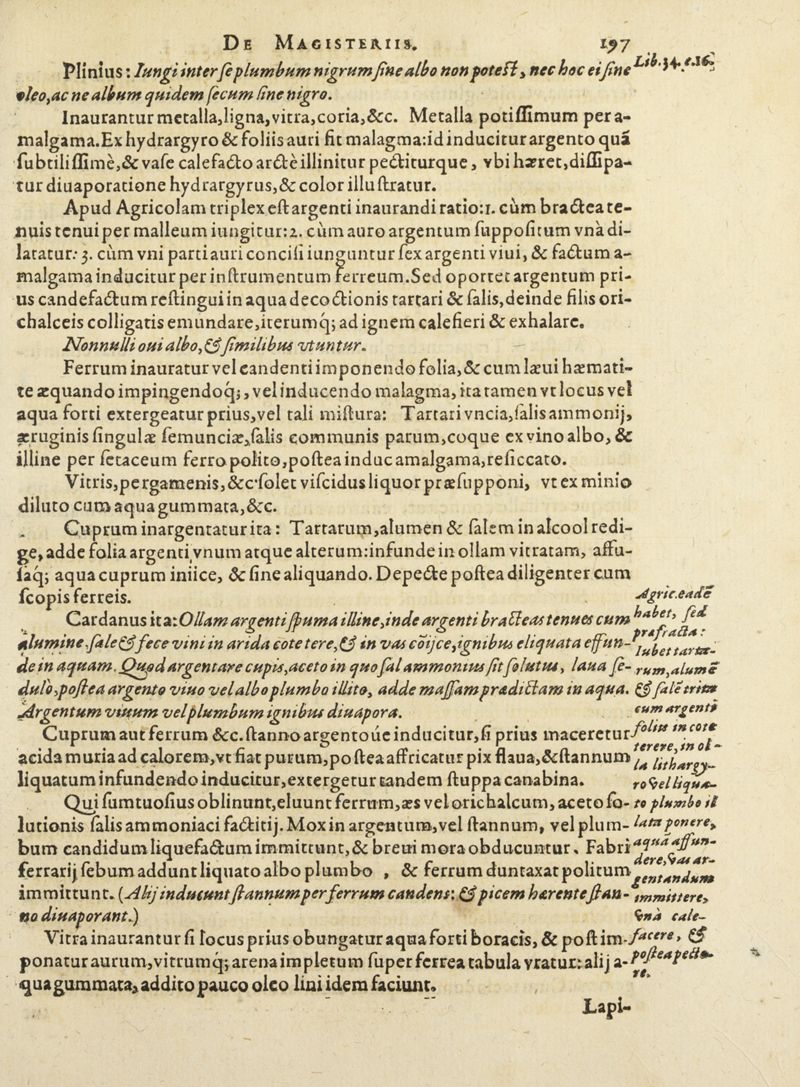 DE MAGISTERIIS. 197
Plinius: Iungi inter se plumbum nigrum sine albo non potest, nec hoc ei sine Lib. 34. c. 16.
oleo, ac ne album quidem secum sine nigro.
Inaurantur metalla, ligna, vitra, coria, &c. Metalla potissimum per a-
malgama. Ex hydrargyro & foliis auri fit malagma: id inducitur argento quā
subtilissimè, & vase calefacto arctè illinitur pectiturque, vbi hæret, dissipa-
tur diuaporatione hydrargyrus, & color illustratur.
Apud Agricolam triplex est argenti inaurandi ratio: 1. cùm bractea te-
nuis tenui per malleum iungitur: 2. cùm auro argentum suppositum vnà di-
latatur: 3. cùm vni parti auri concisi iunguntur sex argenti viui, & factum a-
malgama inducitur per instrumentum ferreum. Sed oportet argentum pri-
us candefactum restingui in aqua decoctionis tartari & salis, deinde filis ori-
chalceis colligatis emundare, iterumq; ad ignem calefieri & exhalare.
Nonnulli oui albo, & similibus vtuntur.
Ferrum inauratur vel candenti imponendo folia, & cum læui hæmati-
te æquando impingendoq;, vel inducendo malagma, ita tamen vt locus vel
aqua forti extergeatur prius, vel tali mistura: Tartari vncia, salis ammonij,
æruginis singulæ semunciæ, salis communis parum, coque ex vino albo, &
illine per setaceum ferro polito, postea induc amalgama, resiccato.
Vitris, pergamenis, &c. solet viscidus liquor præsupponi, vt ex minio
diluto cum aqua gummata, &c.
Cuprum inargentatur ita: Tartarum, alumen & salem in alcool redi-
ge, adde folia argenti vnum atque alterum: infunde in ollam vitratam, affu-
saq; aqua cuprum iniice, & sine aliquando. Depecte postea diligenter cum
scopis ferreis.
Cardanus ita: Ollam argenti spuma illine, inde argenti bracteas tenues cum
alumine, sale & fece vini in arida cote tere, & in vas cōijce, ignibus eliquata effun-
de in aquam. Quod argentare cupis, aceto in quo sal ammonius sit solutus, laua se-
dulo, postea argento viuo vel albo plumbo illito, adde massam prædictam in aqua.
Argentum viuum vel plumbum ignibus diuapora.
Cuprum aut ferrum &c. stanno argentoúe inducitur, si prius maceretur
acida muria ad calorem, vt fiat purum, postea affricatur pix flaua, & stannum
liquatum infundendo inducitur, extergetur tandem stuppa canabina.
Qui sumtuosius oblinunt, eluunt ferrum, æs vel orichalcum, aceto so-
lutionis salis ammoniaci factitij. Mox in argentum, vel stannum, vel plum-
bum candidum liquefactum immittunt, & breui mora obducuntur. Fabri
ferrarij sebum addunt liquato albo plumbo, & ferrum duntaxat politum
immittunt. (Alij inducunt stannum per ferrum candens: & picem hærente stan-
no diuaporant.)
Vitra inaurantur si locus prius obungatur aqua forti boracis, & post im-
ponatur aurum, vitrumq; arena impletum super ferrea tabula vratur: alij a-
qua gummata, addito pauco oleo lini idem faciunt.
Agric. eadē
habet, sed
præfracta:
iubet tarta-
rum, alumē
& salē tritum
cum argenti
foliis in cote
terere, in ol-
la lithargy-
ro vel liqua-
to plumbo il
lata ponere,
aqua affun-
dere, vas ar-
gentandum
immittere,
vnà cale-
facere, &
postea pecte-
re.
Lapi-